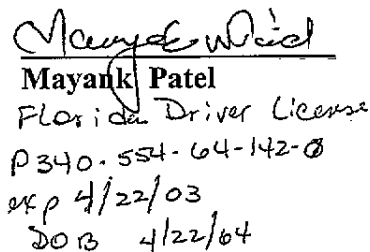 Mayank Patel
Florida Driver License
P340-554-64-142-0
exp 4/22/03
DOB 4/22/64